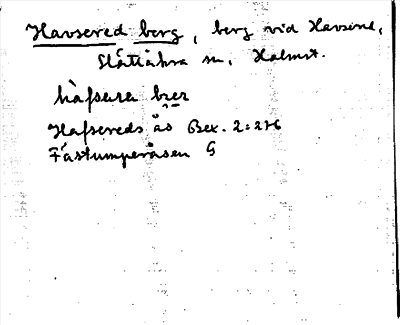 Havsered berg, berg vid Havsered,
Slättåkra sn, Halmst.
håfsera bær
Hafsereds ås Bex. 2:276
Fästumperåsen G